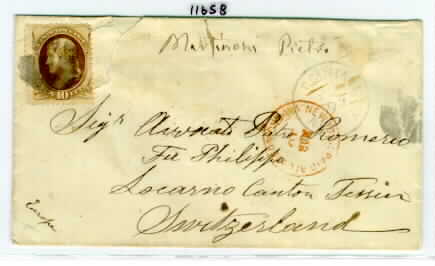 11658
Martinoni Pietro
10
NEW
PAID ALL
Sigr Avvocato Pietro Romerio
Fu Philippo
Locarno Canton Tessin
Switzerland
Europe